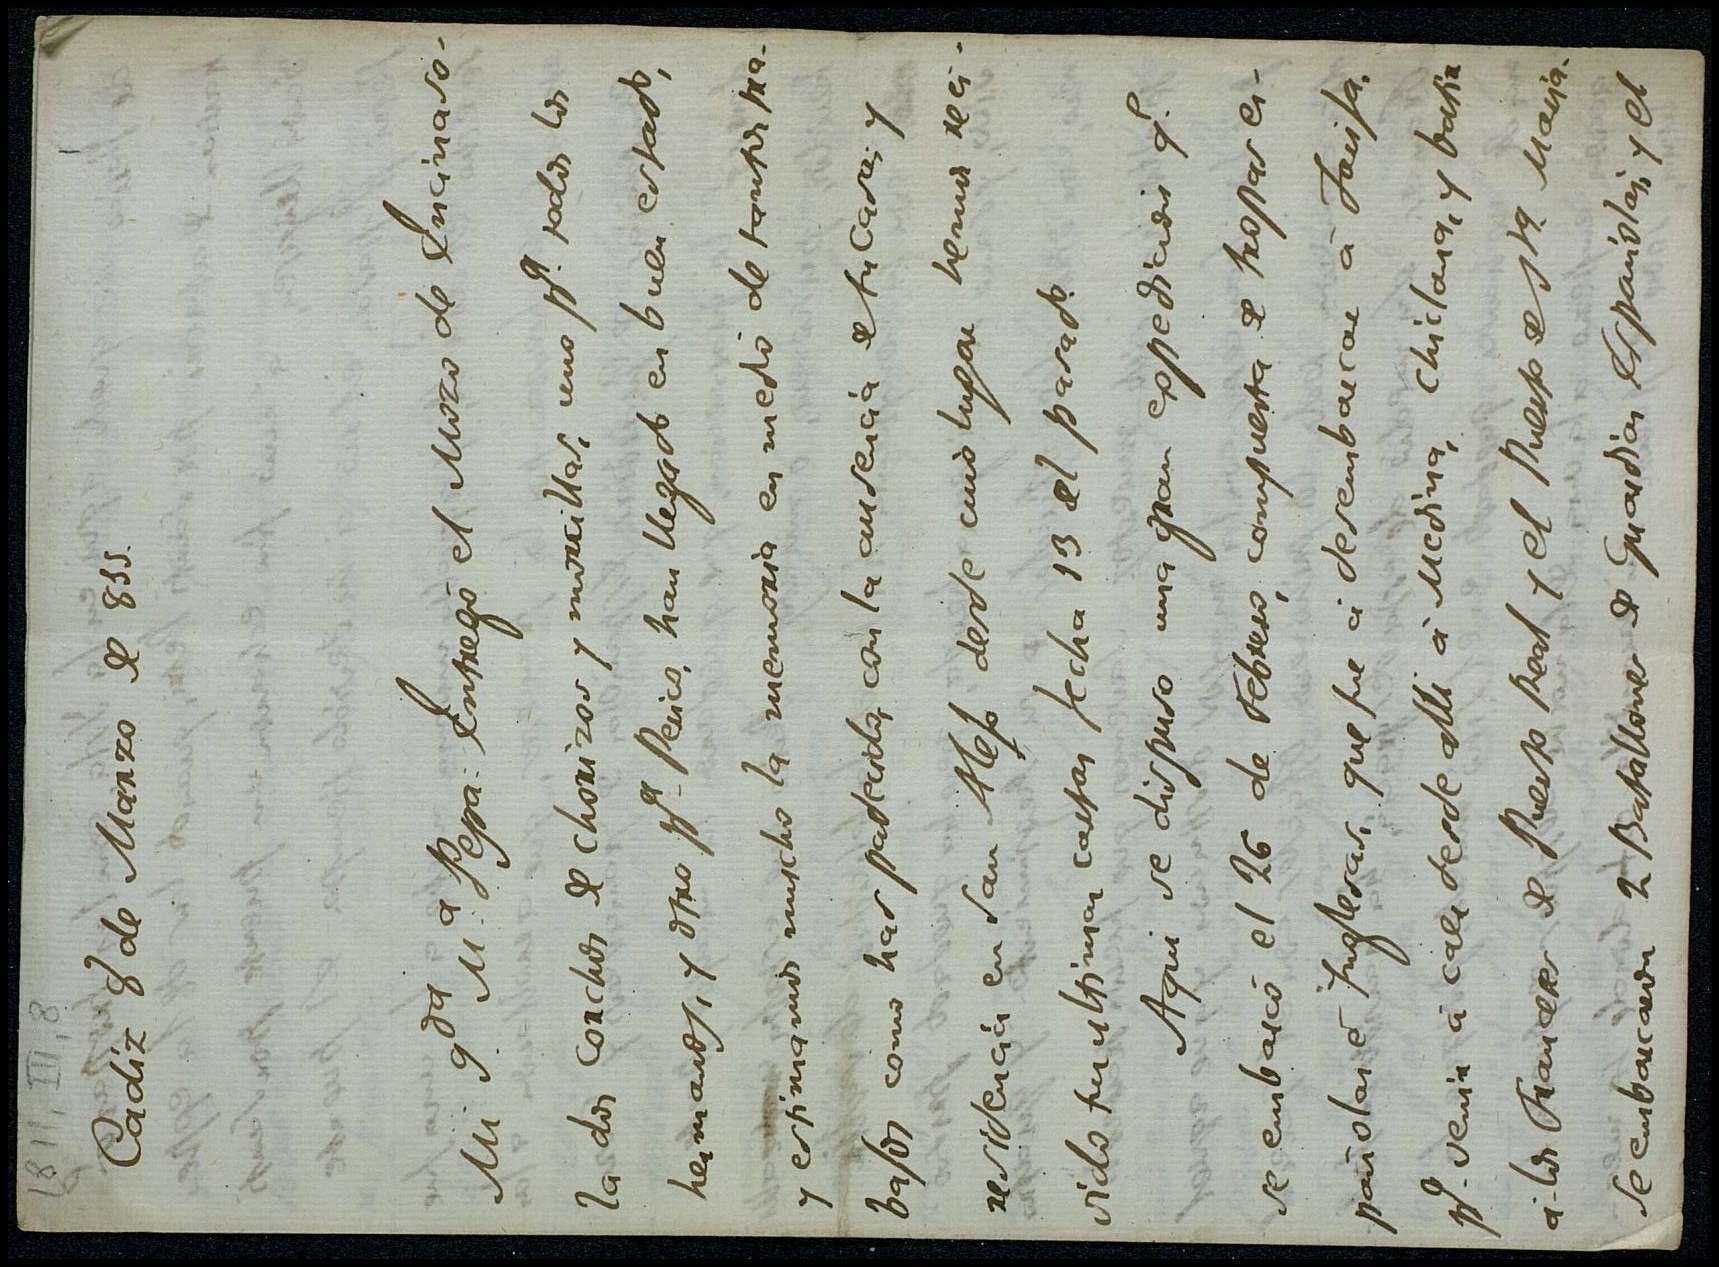 1811, III, 8
1
Cadiz 8 de Marzo de 811.
Mi q.da M.a Pepa: Entregò el Mozo de Encinaso-
la dos conchos de chorizos y morcillas, uno p.a todos los
hermanos, y otro p.a Perico, han llegado en buen estado,
y estimamos mucho la memoria en medio de tantos tra-
bajos como has padecido, con la ausencia de tu casa, y
residencia en San Alejo desde cuio lugar hemos reci-
vido tus ultimas cartas fecha 13 del pasado.
Aqui se dispuso una gran expedicion q.e
se embarcò el 26 de Febrero, compuesta de tropas es-
pañolas è Inglesas, que fue à desembarcar à Tarifa,
p.a venir à caer desde alli à Medina, Chiclana, y batir
a los Franceses de Puerto Real y el Puerto de S.ta Maria.
Se embarcaron 2 Batallones de Guardias Españolas, y el